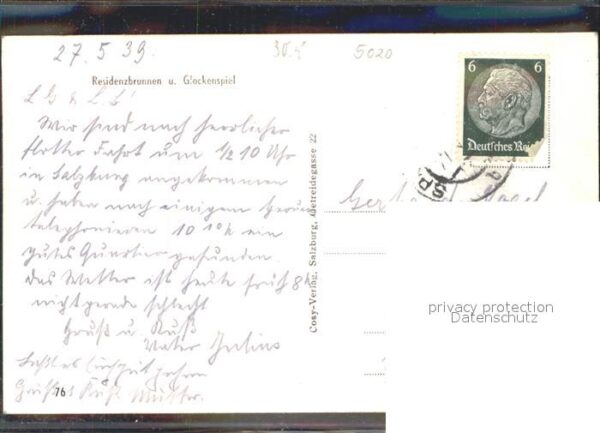 27.5.39.
5020
Residenzbrunnen u. Glockenspiel
Wir sind nach herrlicher
flotter Fahrt um 1/2 10 Uhr
in Salzburg angekommen
u. haben nach einigem
telephonieren 10 10h ein
gutes Quartier gefunden.
Das Wetter ist heute früh 8h
nicht gerade schlecht
Gruß u. Kuß
Vater Julius
Laßt es Euch gut gehen
Kuß Mutter.
76
Cosy-Verlag, Salzburg, Getreidegasse 22
6 6
Deutsches Reich
privacy protection
Datenschutz